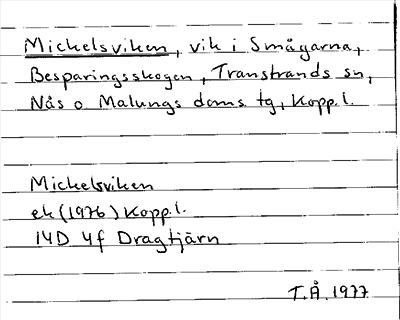 Mickelsviken, vik i Smågarna,
Besparingsskogen, Transtrands sn,
Nås o Malungs doms. tg, Kopp. l.
Mickelsviken
ek (1976) Kopp. l.
14D 4f Dragtjärn
T.Å. 1977